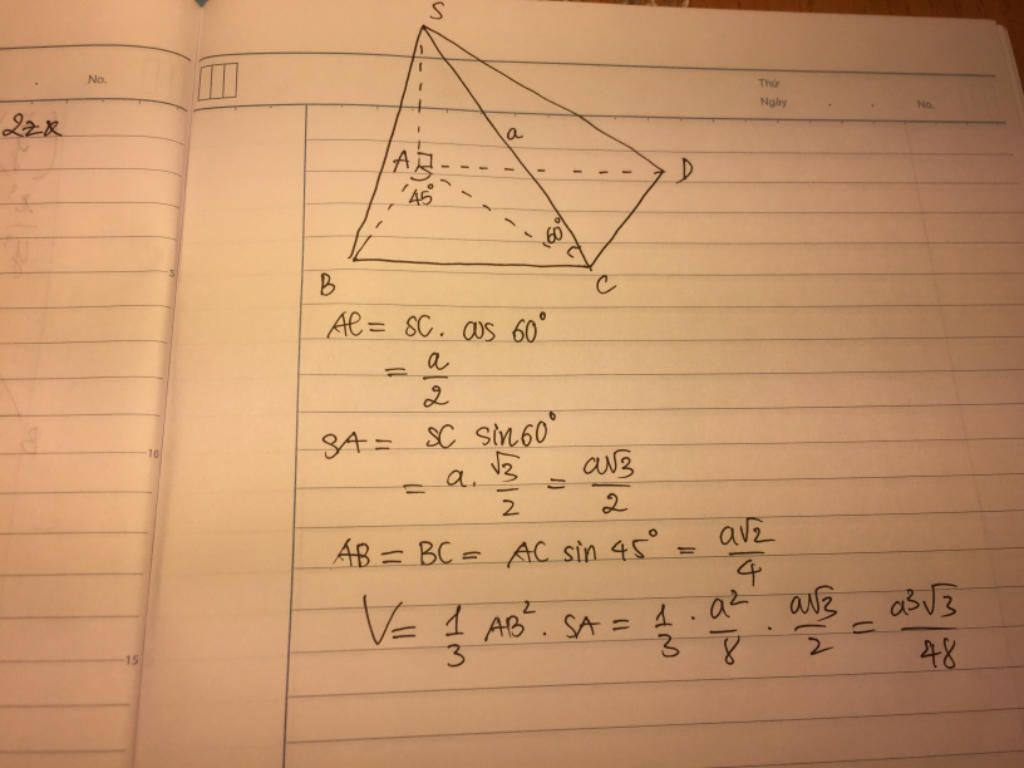 No.
Thứ
Ngày . . No.
2zx
S
a
A
D
45°
60°
B
C
5
AC = SC. cos 60°
= a/2
SA = SC sin60°
10
= a. √3/2 = a√3/2
AB = BC = AC sin 45° = a√2/4
V = 1/3 AB². SA = 1/3 . a²/8 . a√3/2 = a³√3/48
15